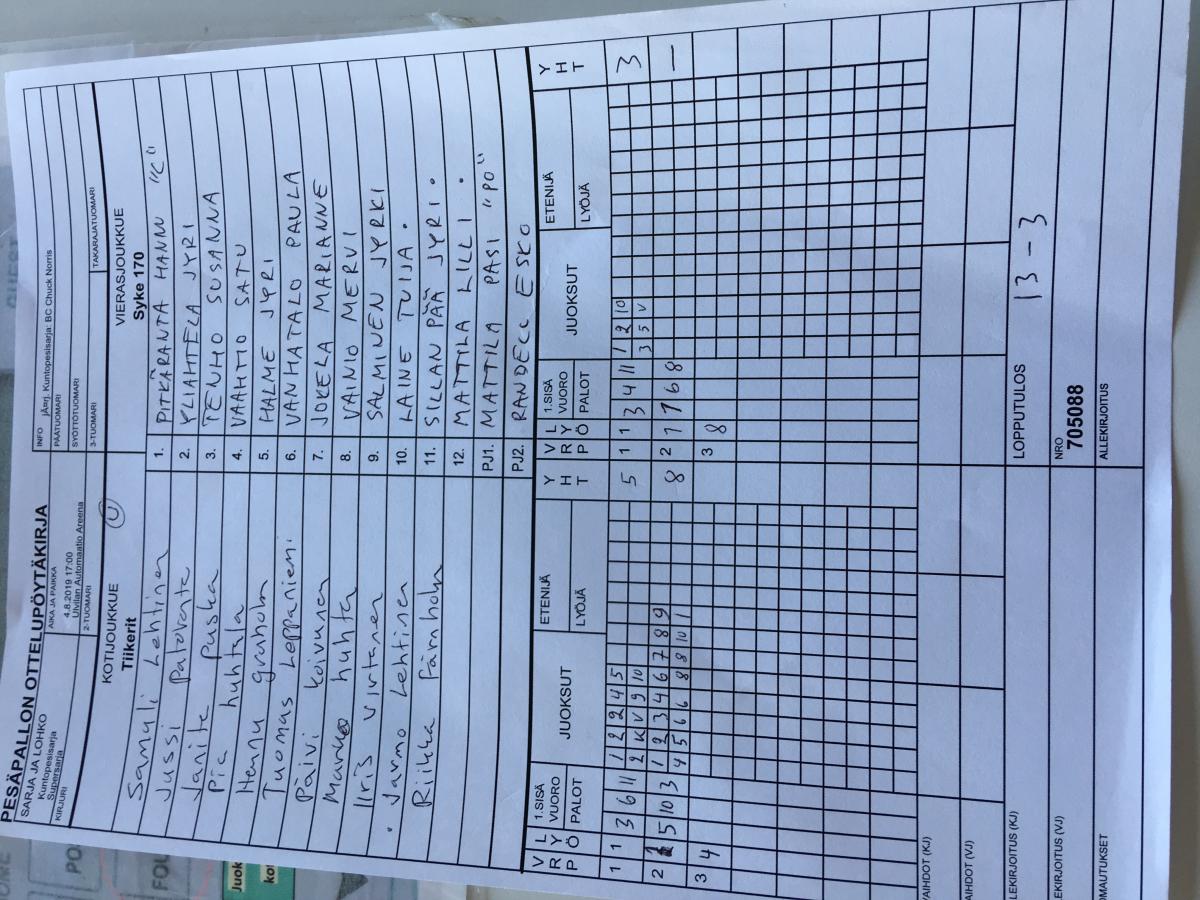 PESÄPALLON OTTELUPÖYTÄKIRJA
SARJA JA LOHKO
Kuntopesisarja
Supersarja
KIRJURI
AIKA JA PAIKKA
4.8.2019 17:00
Ulvilan Automaatio Areena
2-TUOMARI
INFO jÃ¤rj. Kuntopesisarja: BC Chuck Norris
PÄÄTUOMARI
SYÖTTÖTUOMARI
3-TUOMARI
TAKARAJATUOMARI
KOTIJOUKKUE
Tiikerit
U
Samuli Lehtinen
Jussi Palovaata
Janite Paska
Pia huhtala
Hennu granholm
Tuomas Leppäniemi
Päivi Koivunen
Marko huhta
Iiris Virtanen
. Jarmo Lehtinen
Riikka Färnholm
VIERASJOUKKUE
Syke 170
1. PITKÄRANTA HANNU "C"
2. YLIAHTELA JYRI
3. TENHO SUSANNA
4. VAAHTIO SATU
5. HALME JYRI
6. VANHATALO PAULA
7. JOKELA MARIANNE
8. VAINIO MERVI
9. SALMINEN JYRKI
10. LAINE TUIJA .
11. SILLANPÄÄ JYRI .
12. MATTILA LILLI .
PJ1. MATTILA PASI "PO"
PJ2. RANDELL ESKO
V R L Y P Ö 1.SISÄ VUORO PALOT JUOKSUT ETENIJÄ LYÖJÄ Y H T
1 1 3 6 11 1 2 2 4 5 5
2 K V 9 10
2 5 10 3 1 2 3 4 6 7 8 9 8
4 5 6 6 8 8 10 1
3 4
V R L Y P Ö 1.SISÄ VUORO PALOT JUOKSUT ETENIJÄ LYÖJÄ Y H T
1 1 3 4 11 1 2 10 3
3 5 V
2 1 7 6 8 –
3 8
VAIHDOT (KJ)
VAIHDOT (VJ)
LOPPUTULOS 13 - 3
ALLEKIRJOITUS (KJ)
NRO
705088
ALLEKIRJOITUS (VJ)
ALLEKIRJOITUS
HUOMAUTUKSET